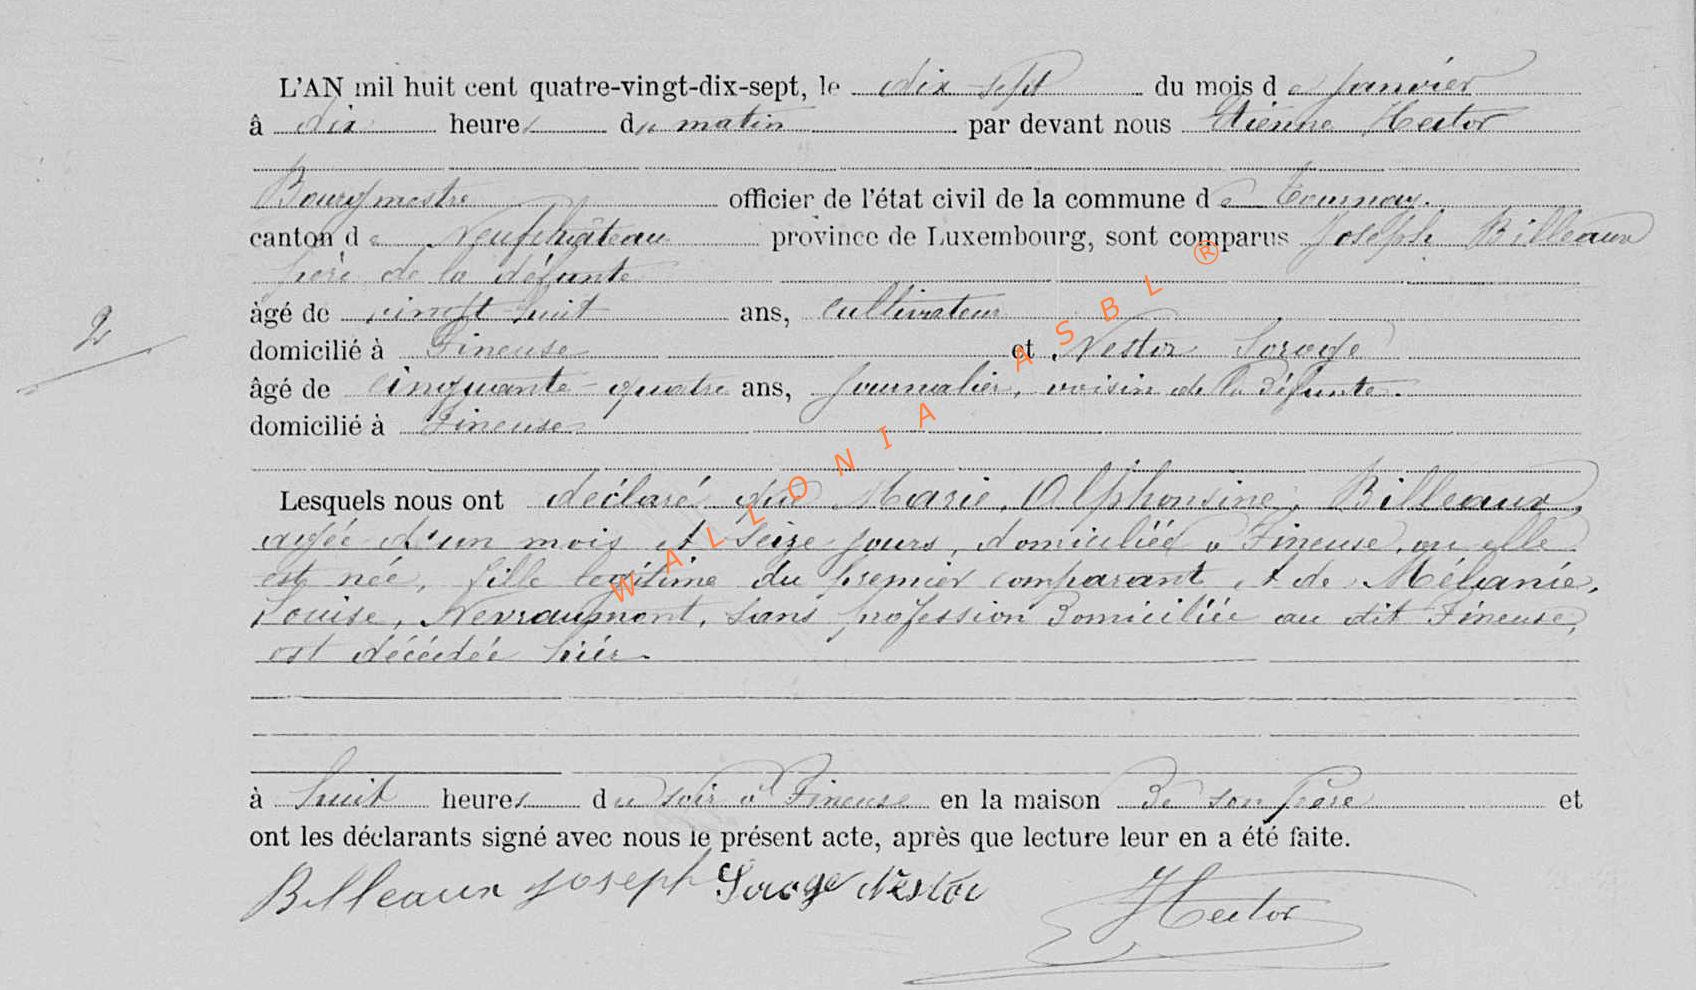 L'AN mil huit cent quatre-vingt-dix-sept, le dix-sept du mois de Janvier
à dix heures du matin par devant nous Etienne Hector
Bourgmestre officier de l'état civil de la commune de Tournay.
canton de Neufchâteau province de Luxembourg, sont comparus Joseph Billeaux
père de la défunte
âgé de vingt-huit ans, cultivateur
domicilié à Fineuse et Nestor Sorage
âgé de cinquante-quatre ans, Journalier, voisin de la défunte.
domicilié à Fineuse
2
Lesquels nous ont déclaré que Marie, Alphonsine, Billeaux,
agée d'un mois et seize jours, domiciliée à Fineuse, ou elle
est née, fille legitime du premier comparant et de Mélanie,
Louise, Nevraumont, sans profession domiciliée au dit Fineuse,
est décédée hier
à huit heures du soir à Fineuse en la maison de son père et
ont les déclarants signé avec nous le présent acte, après que lecture leur en a été faite.
Billeaux Joseph Sorage Nestor Hector
WALLONIA ASBL ®